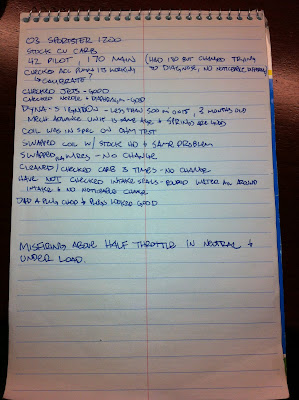 03 SPORTSTER 1200
STOCK CV CARB
42 PILOT, 170 MAIN (HAD 180 BUT CHANGED TRYING
TO DIAGNOSE, NO NOTICABLE DIFFERENCE)
CHECKED ACC. PUMP & IT'S WORKING
↳ CALIBRATE?
CHECKED JETS - GOOD
CHECKED NEEDLE & DIAPHRAGM - GOOD
DYNA-S IGNITION - LESS THAN 500 MI ON IT, 3 MONTHS OLD
MECH ADVANCE UNIT IS SAME AGE & SPRINGS ARE GOOD
COIL WAS IN SPEC ON OHM TEST
SWAPPED COIL W/ STOCK HD & SAME PROBLEM
SWAPPED PLUG WIRES - NO CHANGE
CLEANED/CHECKED CARB 3 TIMES - NO CHANGE
HAVE NOT CHECKED INTAKE SEALS - POURED WATER ALL AROUND
INTAKE & NO NOTICABLE CHANGE
DID A PLUG CHOP & PLUGS LOOKED GOOD
MISFIRING ABOVE HALF THROTTLE IN NEUTRAL &
UNDER LOAD.